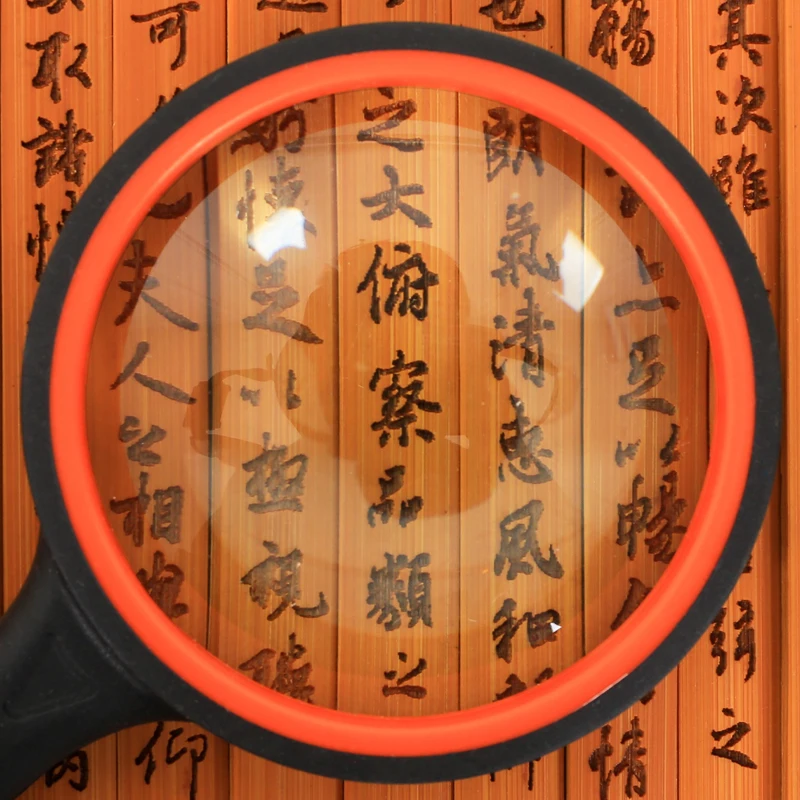 其次雖之
觴亦足以暢情
也朗氣清惠風和
之大俯察品類之
騁懷足以極視聽
可夫人之相與仰
取諸懷